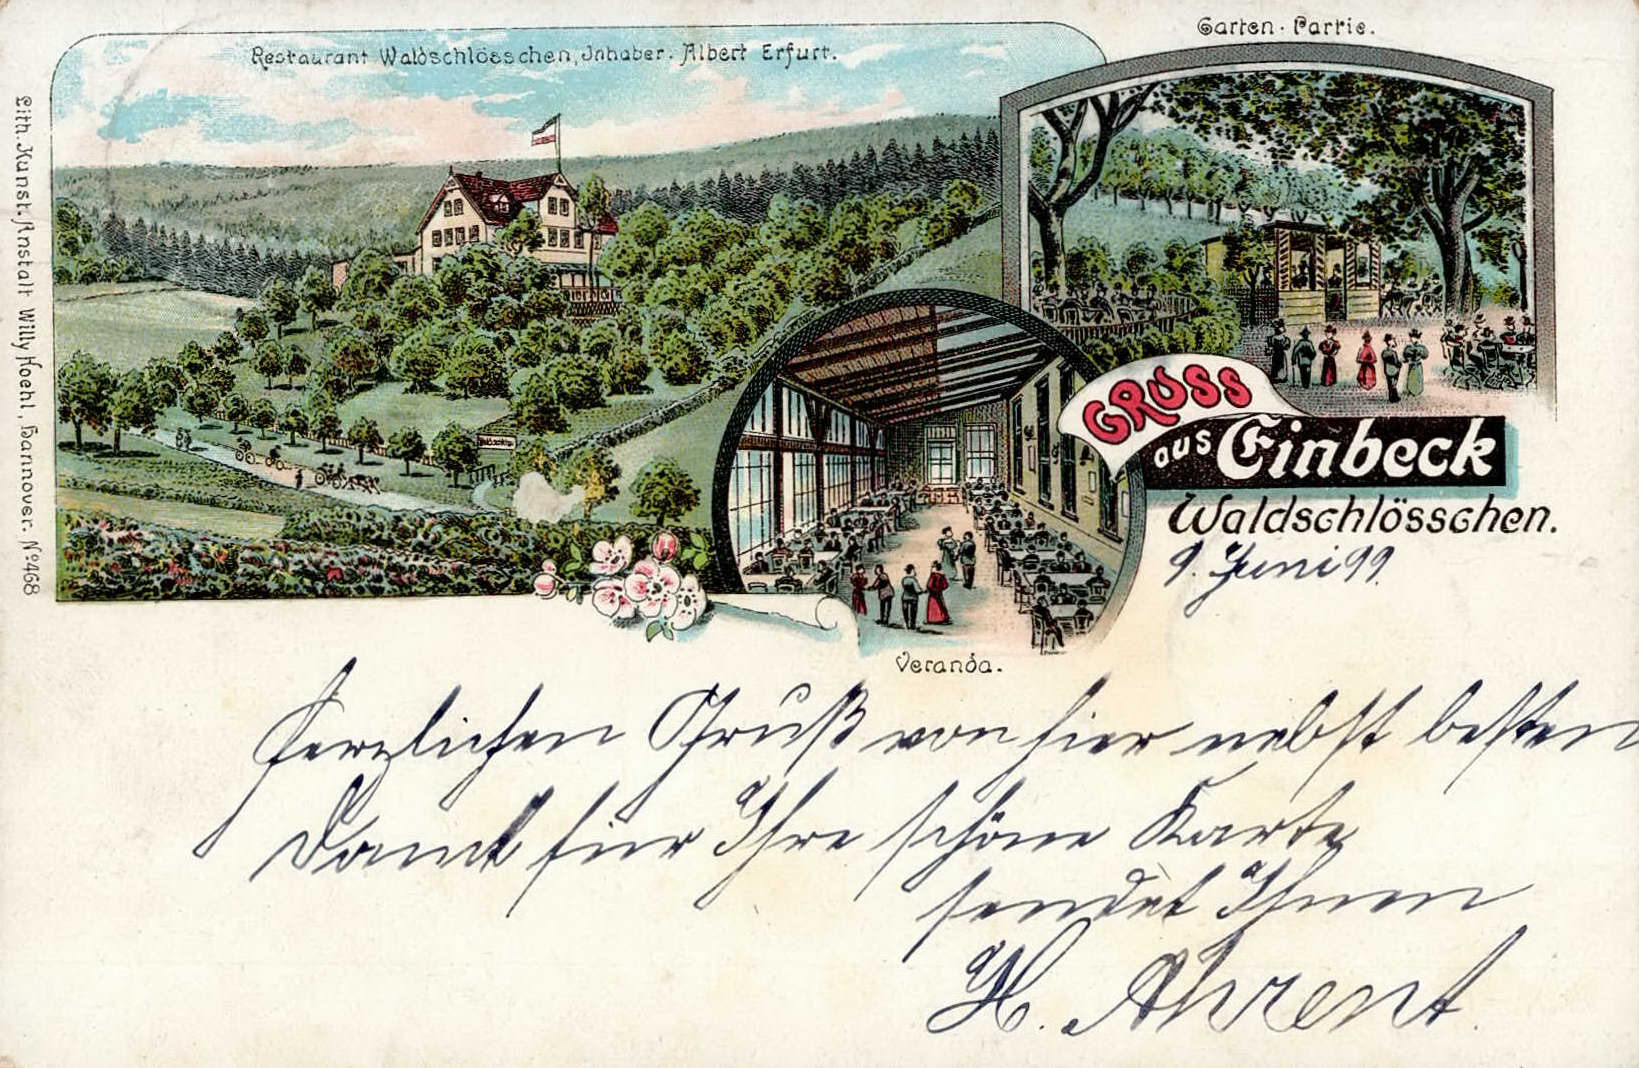 Restaurant Waldschlösschen, Inhaber. Albert Erfurt.
Garten-Partie.
Lith. Kunst. Anstalt Willy Hoehl, Hannover. No 468
Waldschlösschen
GRUSS
aus Einbeck
Waldschlösschen.
9. Juni 99.
Veranda.
Herzlichen Gruß von hier nebst besten
Dank für Ihre schöne Karte
sendet Ihnen
H. Ahrent.